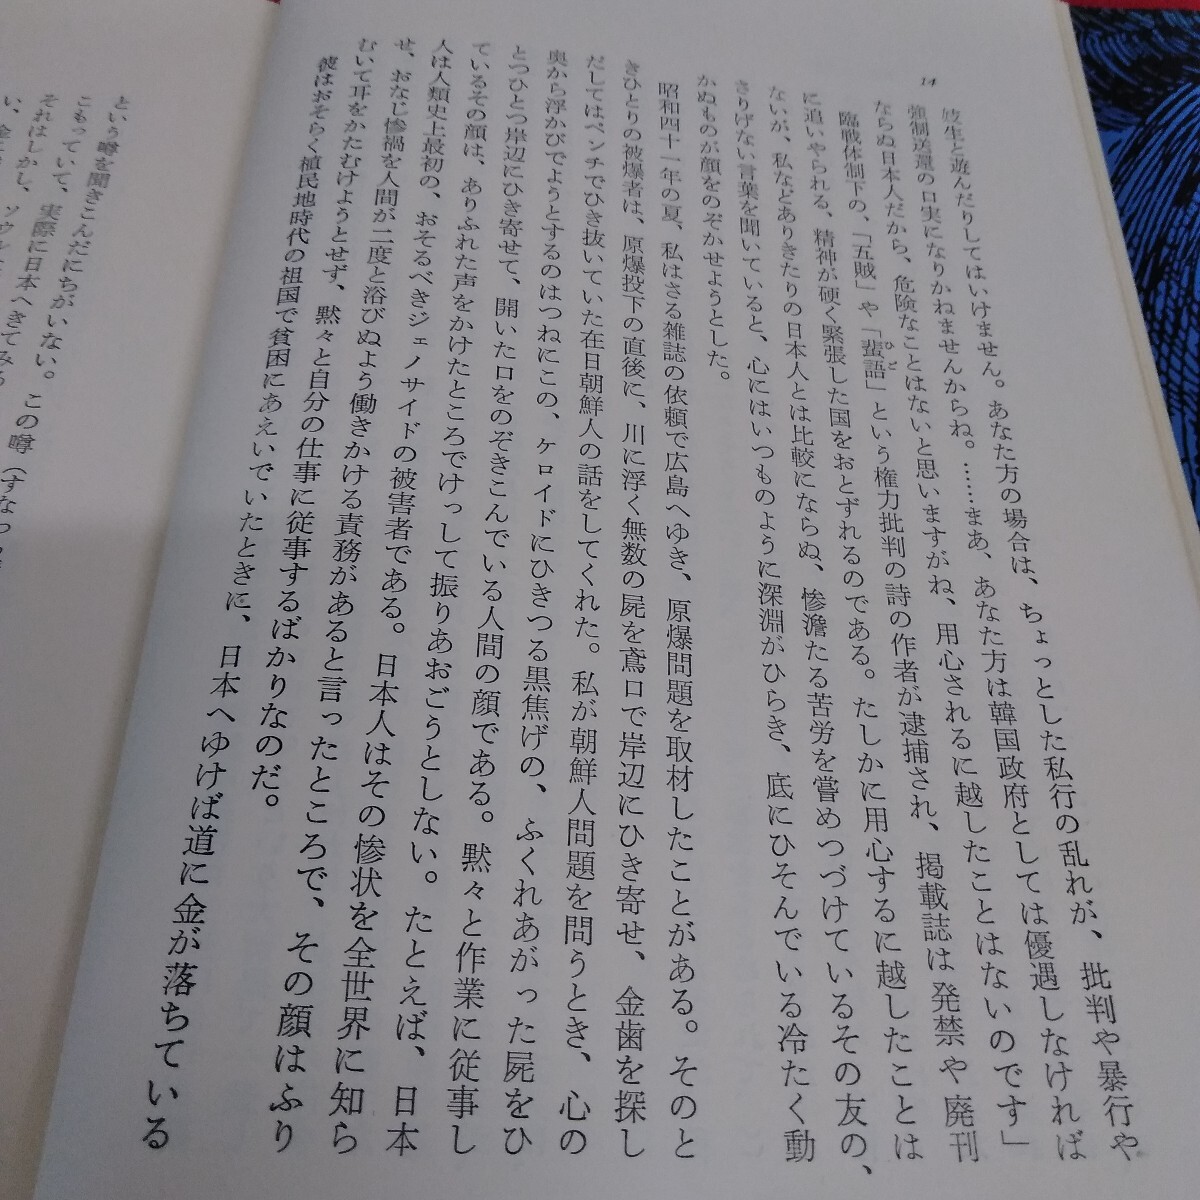 14
妓生と遊んだりしてはいけません。あなた方の場合は、ちょっとした私行の乱れが、批判や暴行や
強制送還の口実になりかねませんからね。……まあ、あなた方は韓国政府としては優遇しなければ
ならぬ日本人だから、危険なことはないと思いますがね、用心されるに越したことはないのです」
臨戦体制下の、「五賊」や「蜚語」という権力批判の詩の作者が逮捕され、掲載誌は発禁や廃刊
ひご
に追いやられる、精神が硬く緊張した国をおとずれるのである。たしかに用心するに越したことは
ないが、私などありきたりの日本人とは比較にならぬ、惨澹たる苦労を嘗めつづけているその友の、
さりげない言葉を聞いていると、心にはいつものように深淵がひらき、底にひそんでいる冷たく動
かぬものが顔をのぞかせようとした。
昭和四十一年の夏、私はさる雑誌の依頼で広島へゆき、原爆問題を取材したことがある。そのと
きひとりの被爆者は、原爆投下の直後に、川に浮く無数の屍を鳶口で岸辺にひき寄せ、金歯を探し
だしてはペンチでひき抜いていた在日朝鮮人の話をしてくれた。私が朝鮮人問題を問うとき、心の
奥から浮かびでようとするのはつねにこの、ケロイドにひきつる黒焦げの、ふくれあがった屍をひ
とつひとつ岸辺にひき寄せて、開いた口をのぞきこんでいる人間の顔である。黙々と作業に従事し
ているその顔は、ありふれた声をかけたところでけっして振りあおごうとしない。たとえば、日本
人は人類史上最初の、おそるべきジェノサイドの被害者である。日本人はその惨状を全世界に知ら
せ、おなじ惨禍を人間が二度と浴びぬよう働きかける責務があると言ったところで、その顔はふり
むいて耳をかたむけようとせず、黙々と自分の仕事に従事するばかりなのだ。
彼はおそらく植民地時代の祖国で貧困にあえいでいたときに、日本へゆけば道に金が落ちている
という噂を聞きこんだにちがいない。この噂
こもっていて、実際に日本へきてみる
それはしかし、ソウル